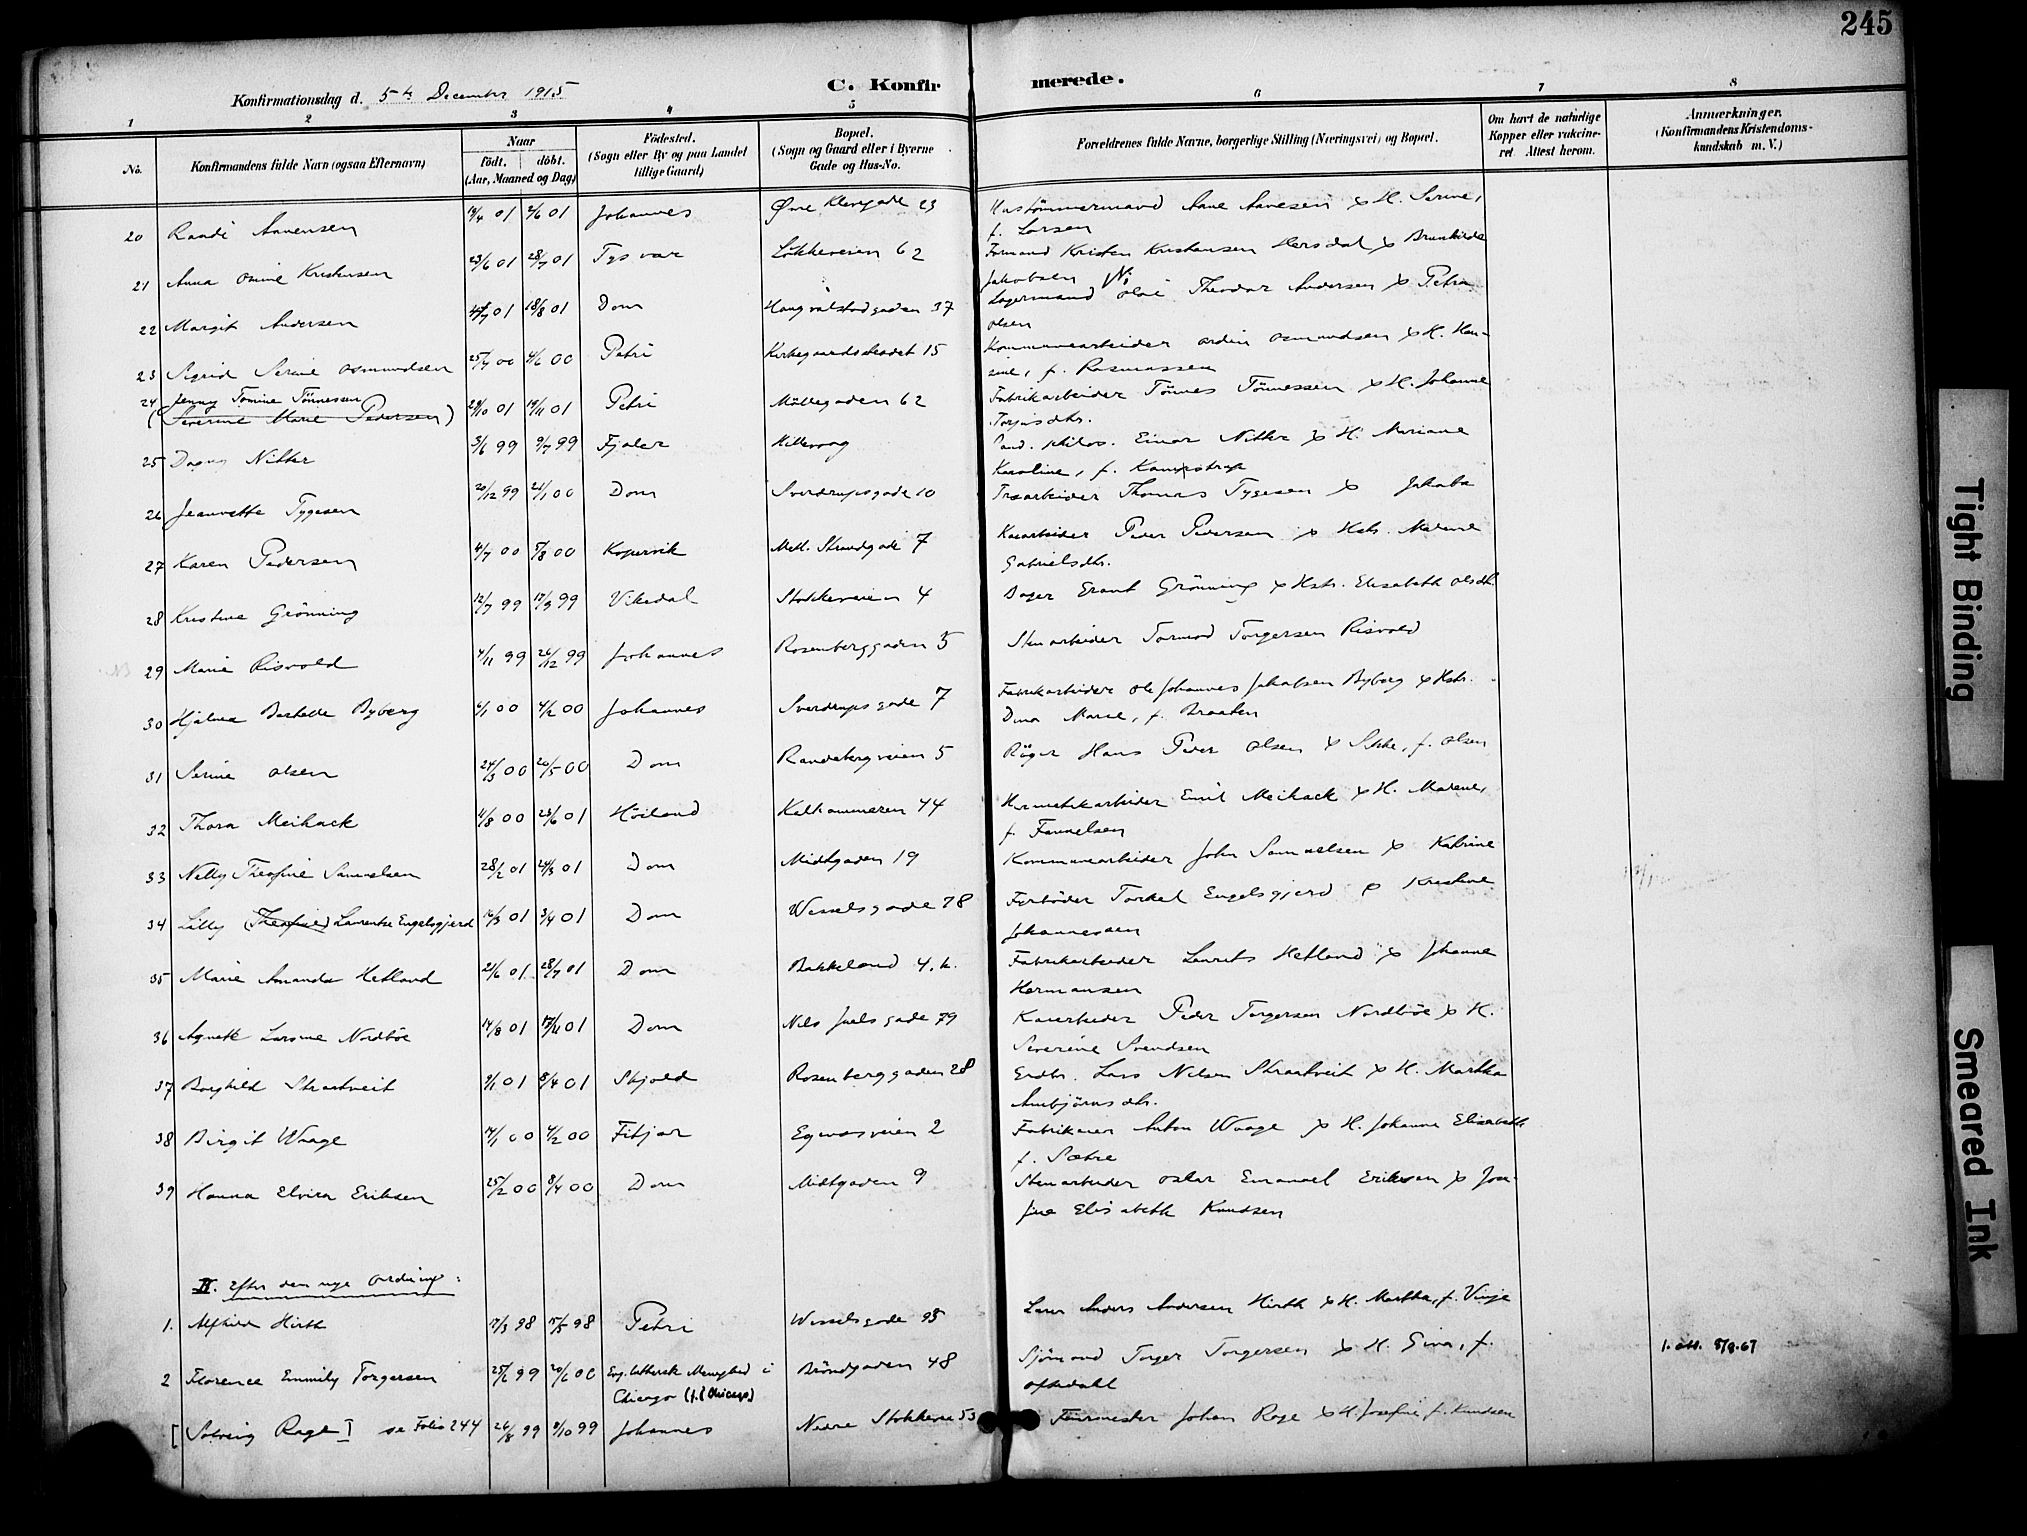 245
Konfirmationsdag d. 5te December 1915
C. Konfirmerede.
1 2 3 4 5 6 7 8
No.
Konfirmandens fulde Navn (ogsaa Efternavn)
Naar
födt. döbt.
(Aar, Maaned og Dag)
Födested.
(Sogn eller By og paa Landet
tillige Gaard)
Bopæl.
(Sogn og Gaard eller i Byerne
Gade og Hus-No.
Forældrenes fulde Navne, borgerlige Stilling (Næringsvei) og Bopæl.
Om havt de naturlige
Kopper eller vakcine-
ret. Attest herom.
Anmærkninger.
(Konfirmandens Kristendoms-
kundskab m. V.)
20 Randi Aanensen 01 2/6 01 Johannes Øvre Klevegade 23 Hustömmermand Aane Aanesen & H. Serine,
f. Larsen
21 Anna Osmine Kristensen 23/6 01 28/7 01 Tysvær Lökkeveien 62 Formand Kristen Kristensen & Brunhilde
Jakobsen
22 Margit Andersen 01 18/8 01 Dom Haugvaldstadgaden 37 Lagermand Olai Theodor Andersen & Petra
Olsen
23 Sigrid Serine Osmundsen 00 00 Petri Kirkegaardsbrædet 15 Kommunearbeider Osmundsen & H. Han-
sine, f. Rasmussen
24 Jenny Tomine Tönnessen 01 01 Petri Möllegaden 62 Fabrikarbeider Tönnes Tönnessen & H. Johanne
(Severine Marie Pedersen)
Torjusdtr.
25 Dagny Nitter 3/6 99 9/7 99 Fjaler Hillevaag Cand. philos. Einar Nitter & H. Mariane
Karoline, f. Kampstrup
26 Jeanette Tygesen 20/12 99 21/1 00 Dom Sverdrupsgade 10 Træarbeider Thomas Tygesen & Jakoba
27 Karen Pedersen 4/7 00 5/8 00 Kopervik Mell. Strandgade 7 Kaiarbeider Peder Pedersen & Hstr. Malene
Gabrielsdtr.
28 Kristine Grönning 12/7 99 17/9 99 Vikedal Stokkeveien 4 Bager Grönning & Hstr. Elisabeth Olsdtr.
29 Marie Risvold 4/11 99 26/12 99 Johannes Rosenberggaden 5 Stenarbeider Tormod Torgersen Risvold
30 Hjalma Bertelle Byberg 6/1 00 4/2 00 Johannes Sverdrups gade 7 Fabrikarbeider Ole Johannes Jakobsen Byberg & Hstr.
Dina Marie, f. Braaten
31 Serine Olsen 24/3 00 20/5 00 Dom Randebergveien 5 Röger Hans Peder Olsen & f. Olsen
32 Thora Meihack 11/8 00 23/6 01 Höiland Kalhammeren 44 Hermetikarbeider Emil Meihack & H. Malene,
f. Fannelsen
33 Nelly Theofine Samuelsen 28/2 01 24/3 01 Dom Midtgaden 19 Kommunearbeider John Samuelsen & Katrine
34 Lilly (Theofine) Laurentse Engelsgjerd 16/3 01 3/4 01 Dom Wesselsgade 78 Fyrböder Torkel Engelsgjerd & Kristine
Johannessen
35 Marie Amanda Hetland 21/6 01 28/7 01 Dom Bakkeland 4. k. Fabrikarbeider Laurits Hetland & Johanne
Hermansen
36 Agnete Larsine Nordböe 14/8 01 01 Dom Nils Juels gade 79 Kaiarbeider Peder Torgersen Nordböe & H.
Severine Svendsen
37 Borghild Straatveit 9/1 01 8/4 01 Skjold Rosenberggaden 28 Grdbr. Lars Nilsen Straatveit & H. Martha
Arnbjörnsdtr.
38 Birgit Waage 14/1 00 4/2 00 Fitjar Egenæsveien 2 Fabrikeier Anton Waage & H. Johanne Elisabeth
f. Sætre
39 Hanna Elvira Eriksen 25/2 00 8/4 00 Dom Midtgaden 9 Stenarbeider Oskar Emanuel Eriksen & Jose-
fine Elisabeth Knudsen
II. Efter den nye Ordning:
1. Alfhild Hirth 17/3 98 15/5 98 Petri Wesselsgade 95 Lærer Anders Andersen Hirth & H. Martha, f. Vinje
2 Florence Emmily Torgersen 25/6 99 20/6 00 Evg. luthersk Menighed i Bröndgaden 48 Sjömand Torger Torgersen & H. Gina, f.
Chicago (f. i Chicago)
Oftedahl
1. att. 5/8.67
[Solveig Rage] se Folio 244 26/8 99 8/10 99 Johannes Nedre Stokkevei 53 Johan Rage & H. Josefine f. Knudsen
Tight Binding
Smeared Ink